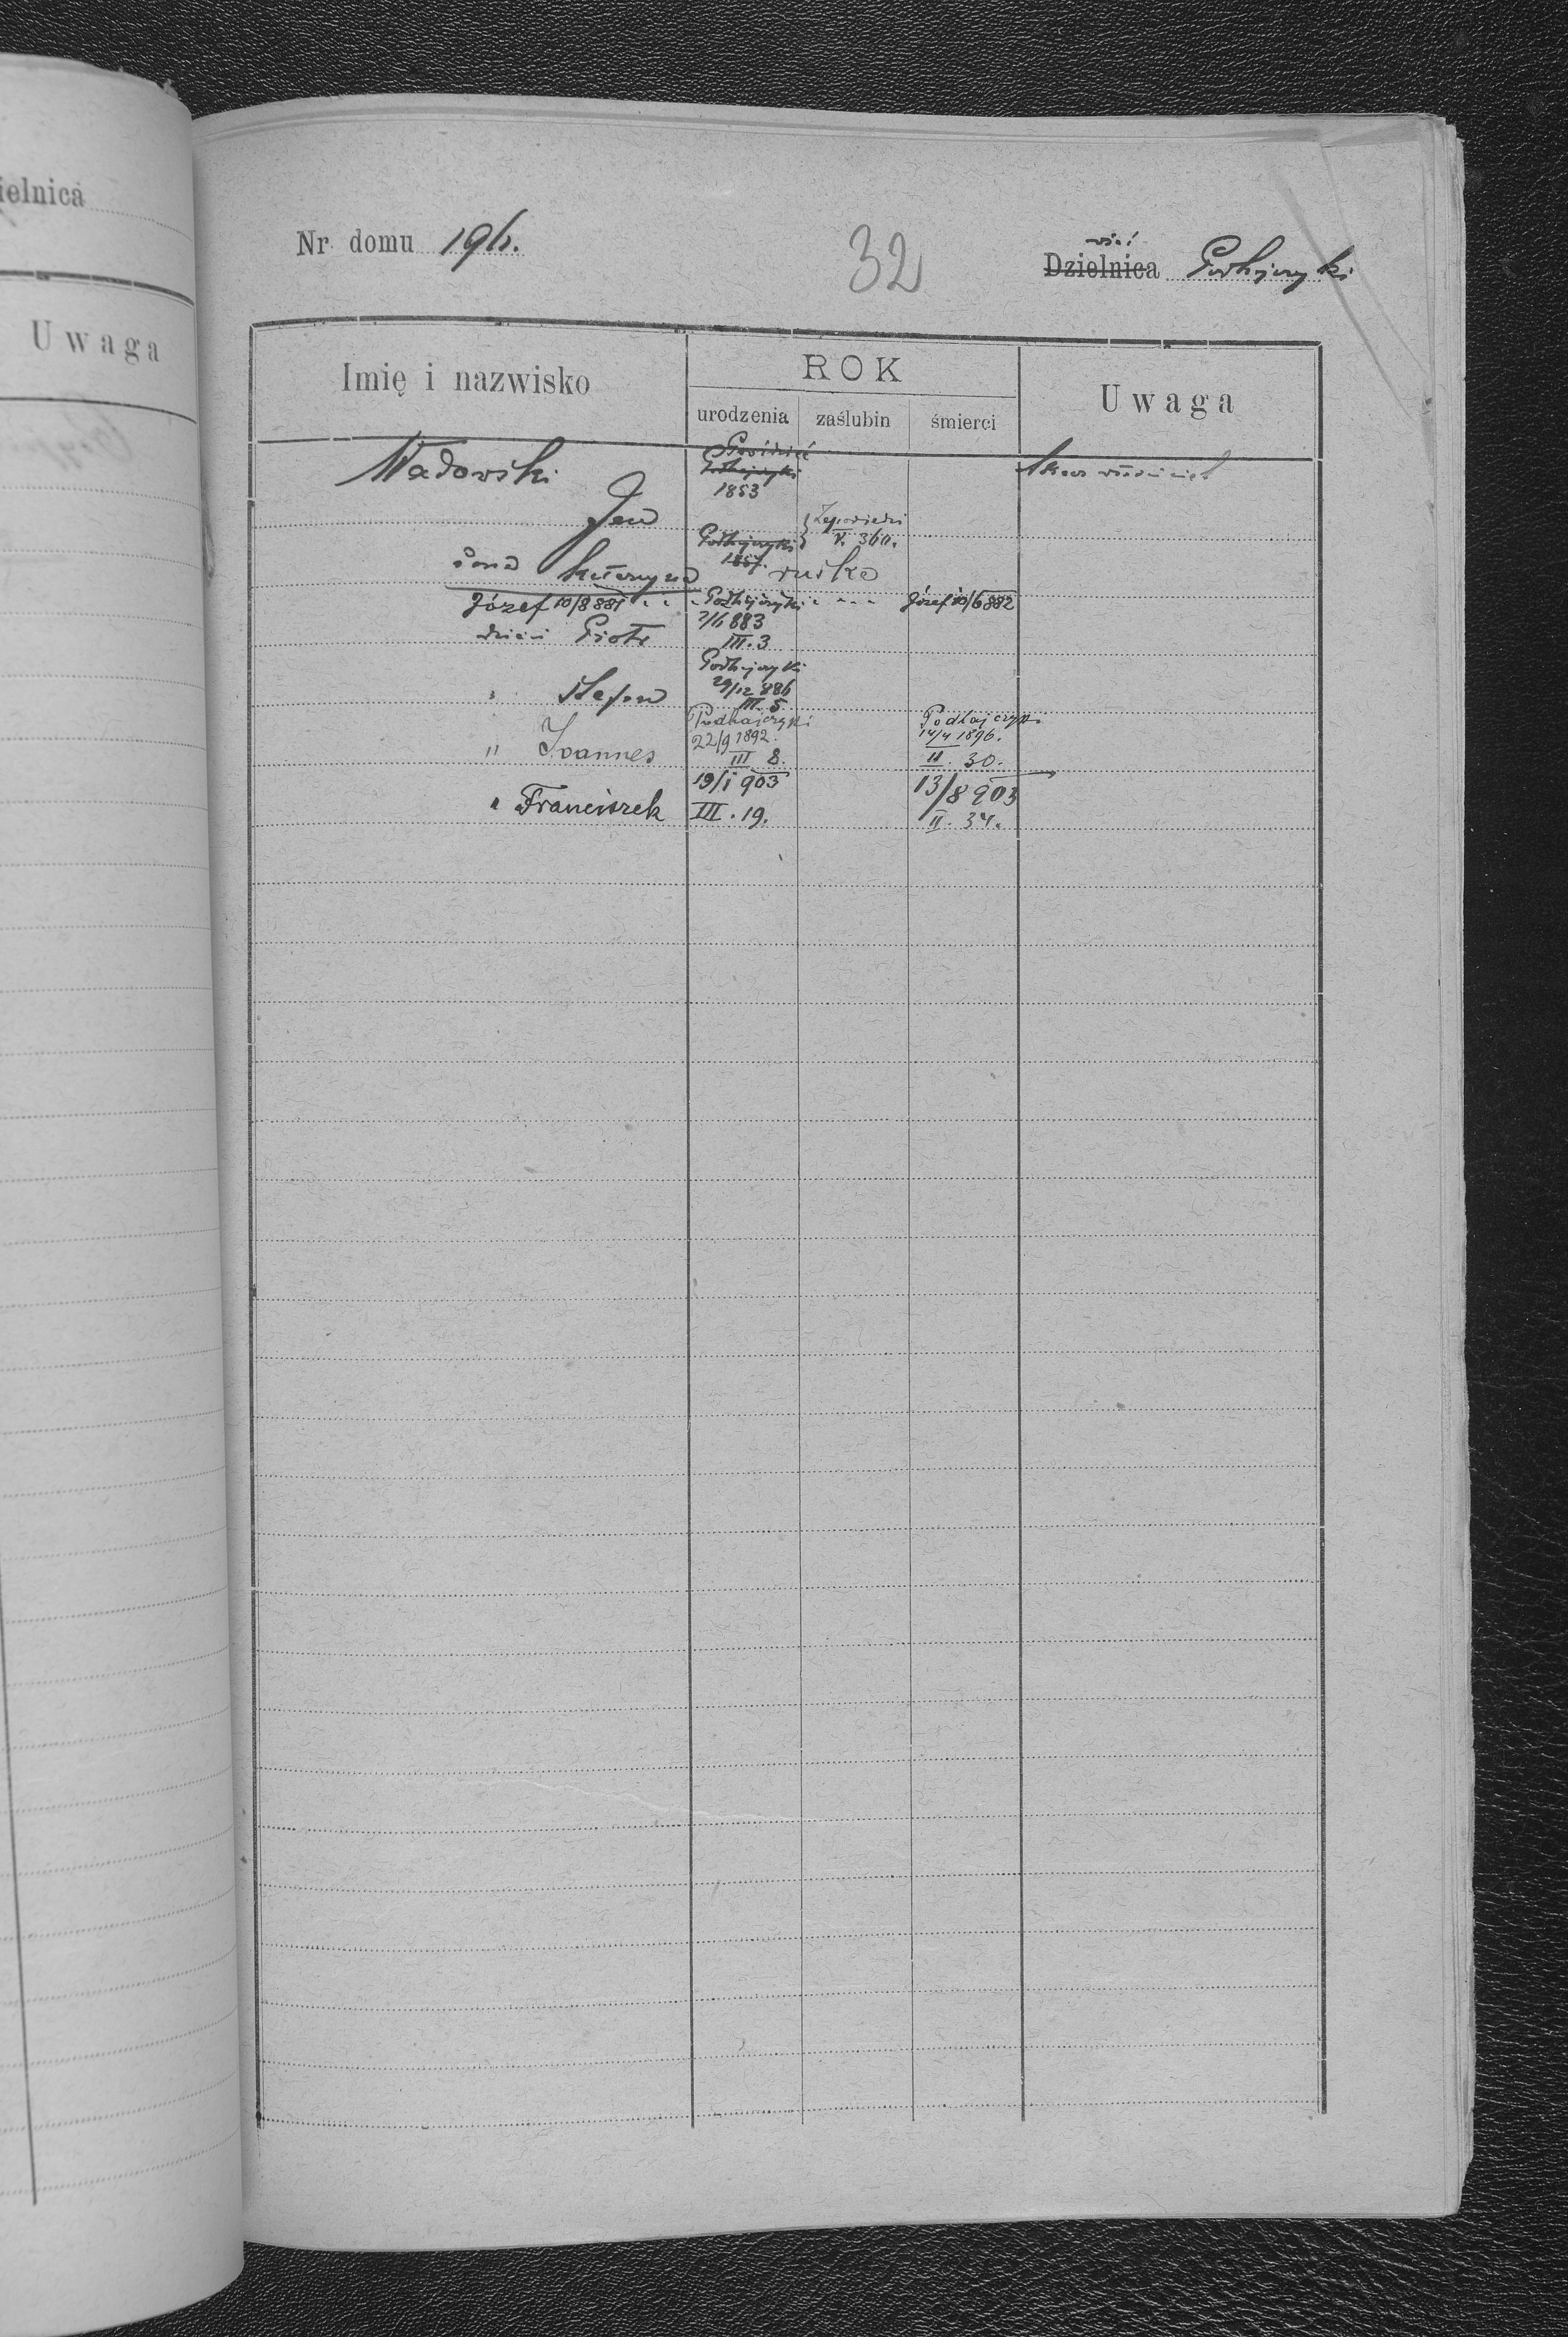 ielnica
Uwaga
Nr domu 196.
32
wieś
Dzielnica Podhajczyki
Imię i nazwisko
ROK
urodzenia zaślubin śmierci
Uwaga
Wadowski
Podhajczyki
1853
Jan
Zapowiedzi
V. 360.
Podhajczyki
1857.
żona Katarzyna ruska
Józef 10/8 881 Podhajczyki Józef 10/6 882
dzieci Piotr 883
III. 3
Podhajczyki
" Stefan 29/12 886
III. 5
Podhajczyki Podhajczyki
22/9 1892. 14/4 1896.
" Joannes III 8. II. 30.
19/I 903 13/8 903
" Franciszek III. 19. II. 34.